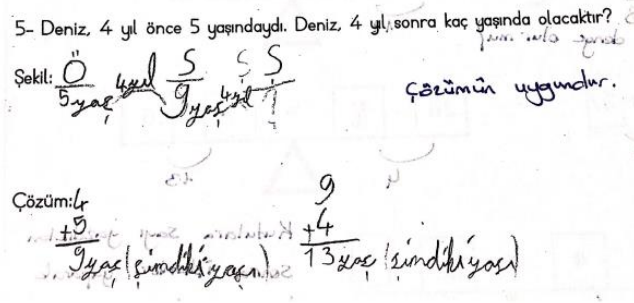 5- Deniz, 4 yıl önce 5 yaşındaydı. Deniz, 4 yıl sonra kaç yaşında olacaktır?
Şekil: Ö 4yıl Ş 4yıl S
5 yaş 9 yaş ?
Çözümün uygundur.
Çözüm: 4
+5
9 yaş (şimdiki yaşı)
9
+4
13 yaş (şimdiki yaşı)